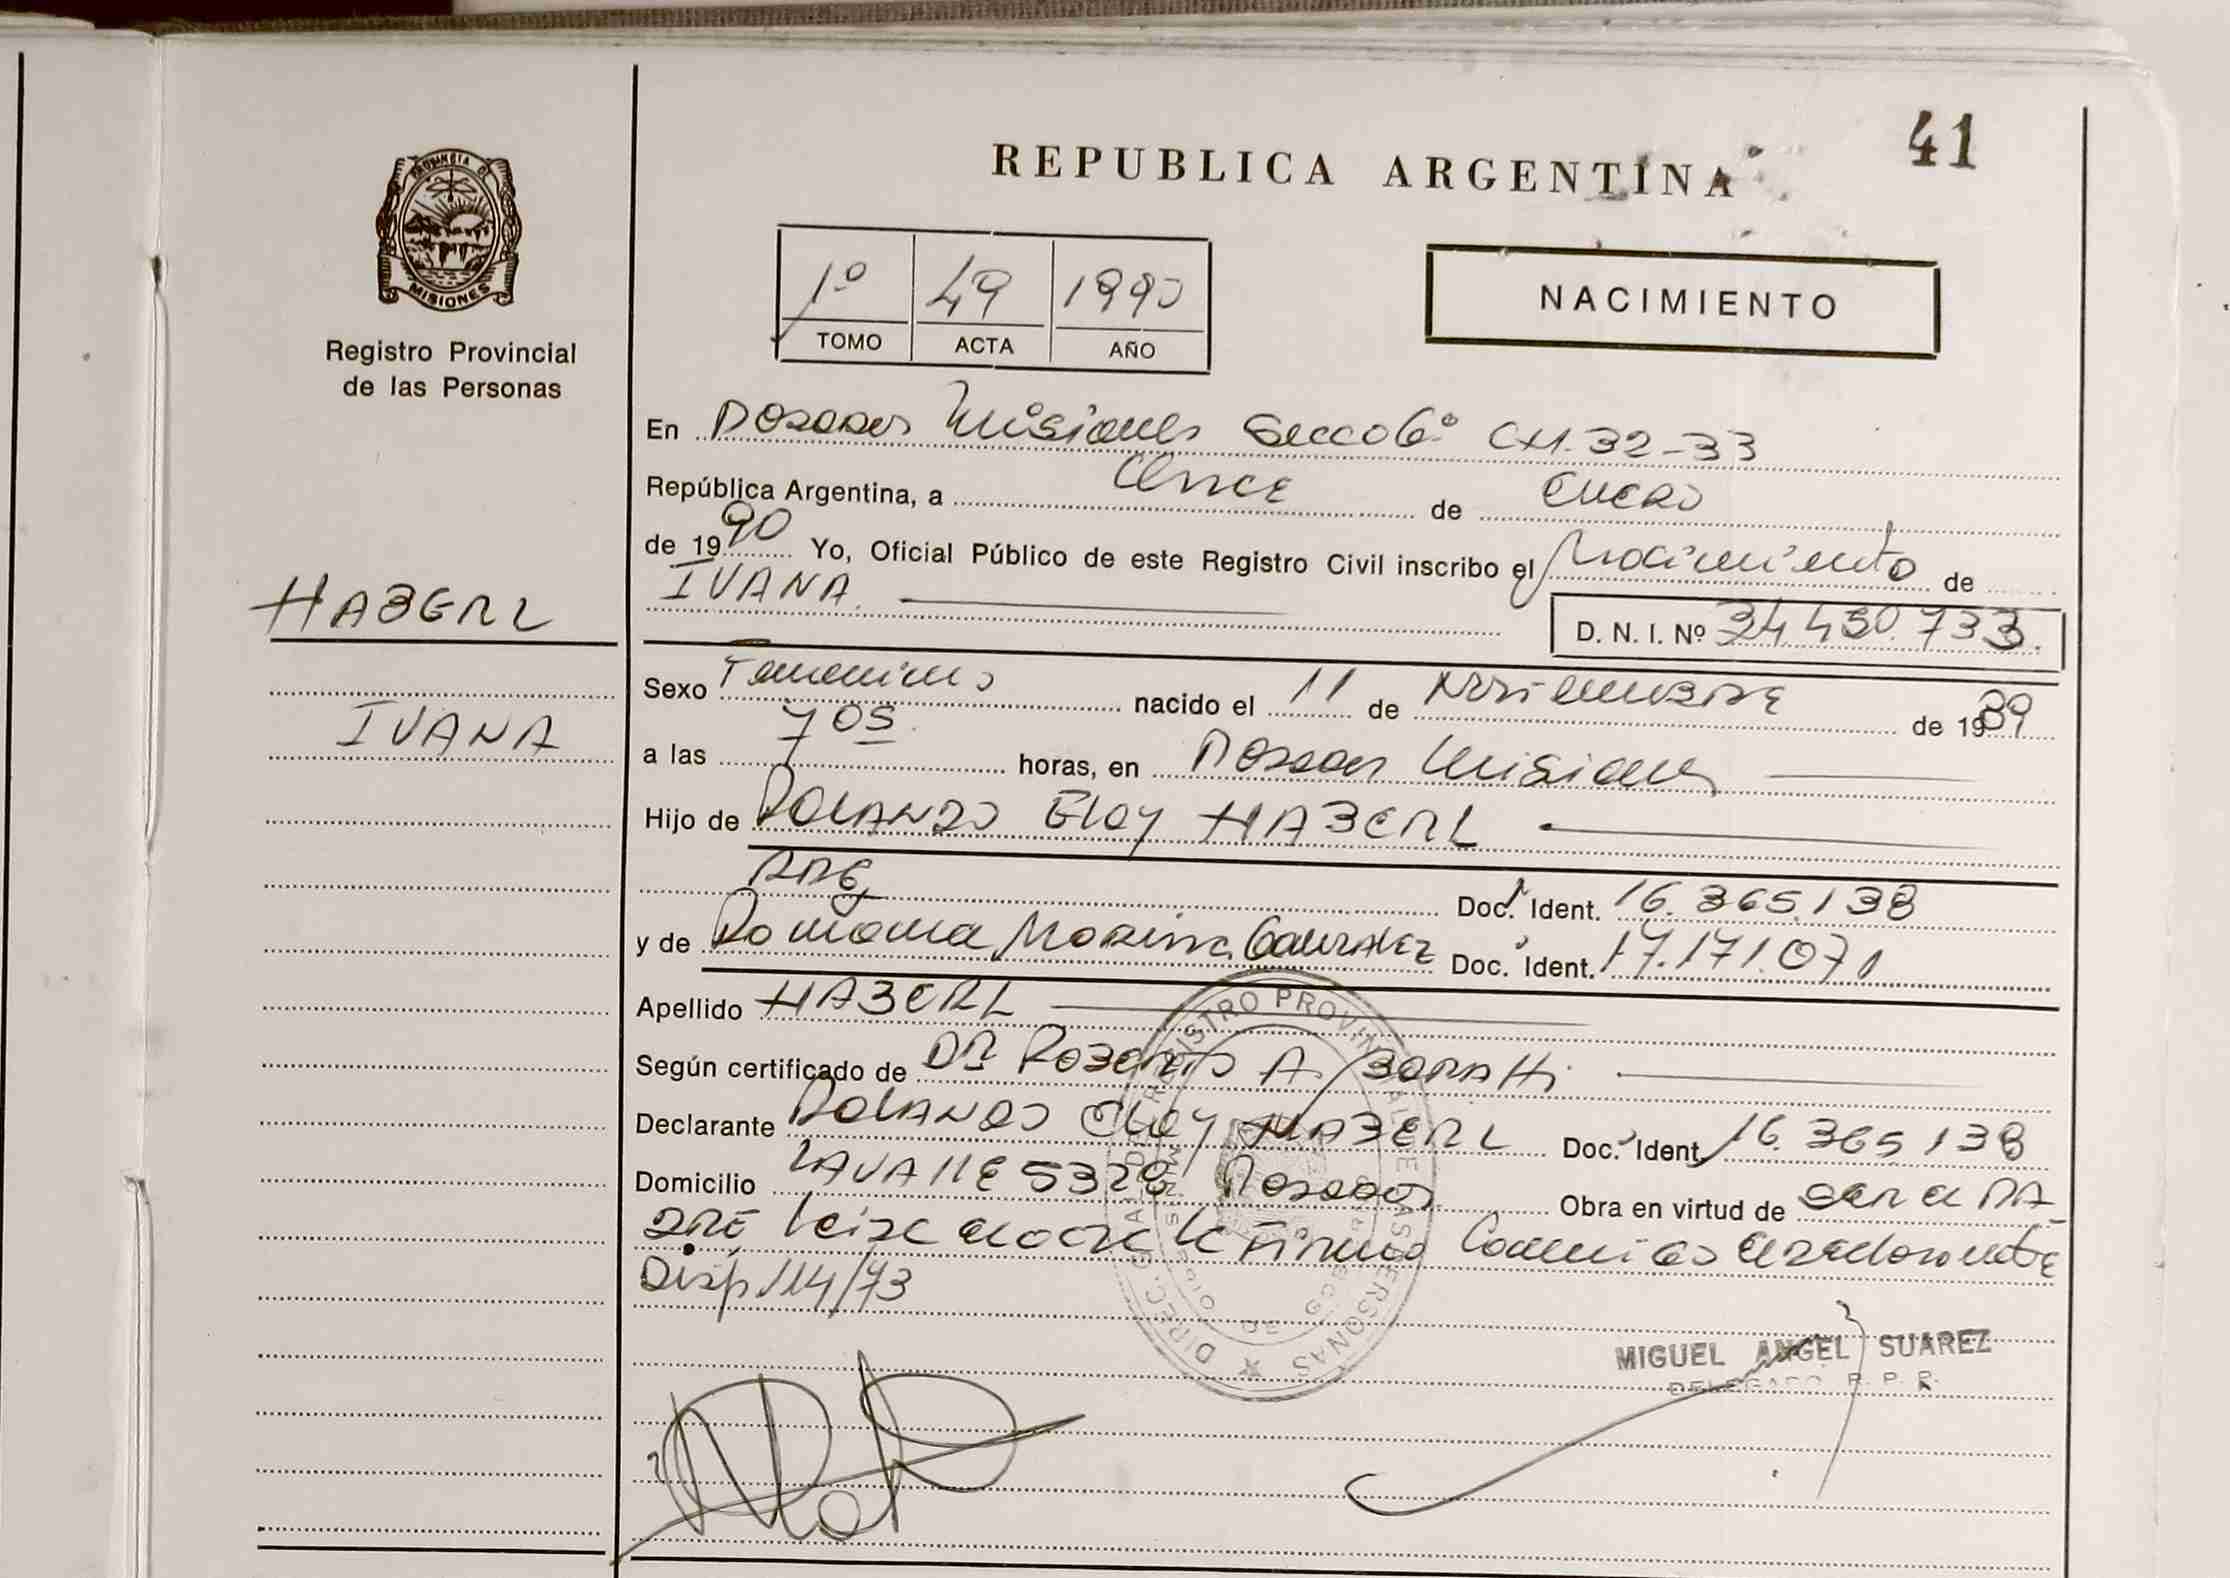 41
REPUBLICA ARGENTINA
PROVINCIA DE
MISIONES
Registro Provincial
de las Personas
1º 49 1990
TOMO ACTA AÑO
NACIMIENTO
En Posadas Misiones Secc 6º CH. 32-33
República Argentina, a Once de Enero
de 1990 Yo, Oficial Público de este Registro Civil inscribo el Nacimiento de
IVANA.
D. N. I. Nº 34.450.733.
HABERL
IVANA
Sexo Femenino nacido el 11 de Noviembre de 1989
a las 7 05 horas, en Posadas Misiones
Hijo de ROLANDO Eloy HABERL
ARG Doc. Ident. 16.365.138
y de Ramona Marina Gonzalez Doc. Ident. 17.171.071
Apellido HABERL
Según certificado de DR Roberto A.
Declarante ROLANDO Eloy HABERL Doc. Ident. 16.365.138
Domicilio LAVALLE 5328 Posadas Obra en virtud de ser el PA
DRE
Disp 114/73
DIREC. GRAL. DEL REGISTRO PROVINCIAL DE LAS PERSONAS
MISIONES
MIGUEL ANGEL SUAREZ
DELEGADO R. P. P.